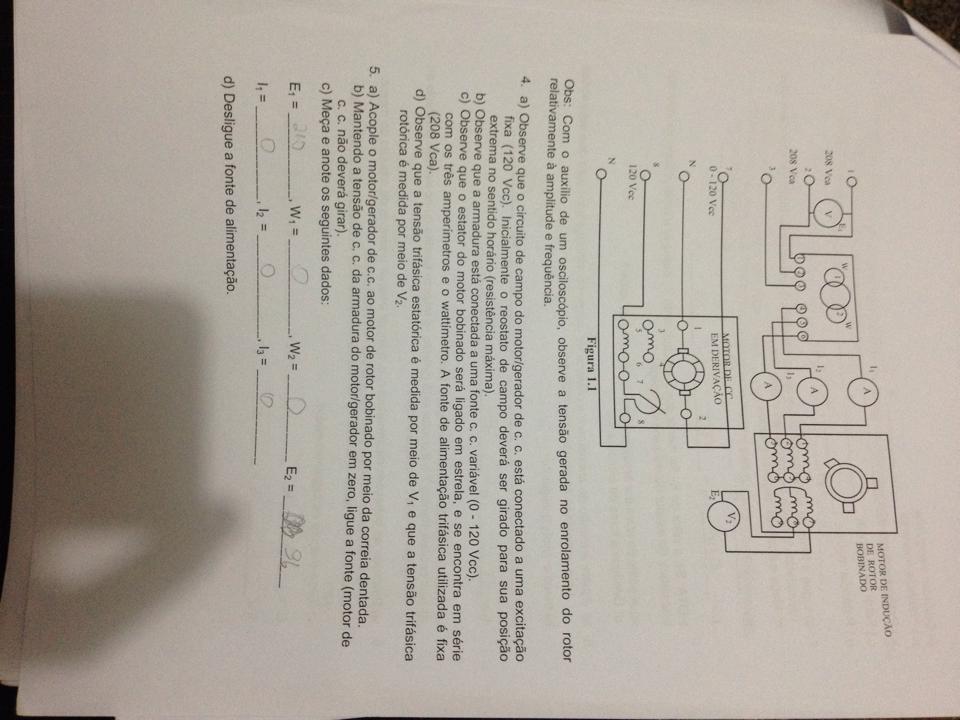 1
208 Vca
2
208 Vca
3
E₁
V
W
1
2
W
I₁
I₂
I₃
A
A
A
MOTOR DE INDUÇÃO
DE ROTOR
BOBINADO
E₂
V₂
7
0 - 120 Vcc
N
8
120 Vcc
N
MOTOR DE CC
EM DERIVAÇÃO
1
2
3
4
5
6
7
8
Figura 1.1
Obs: Com o auxílio de um osciloscópio, observe a tensão gerada no enrolamento do rotor
relativamente à amplitude e frequência.
4. a) Observe que o circuito de campo do motor/gerador de c. c. está conectado a uma excitação
fixa (120 Vcc). Inicialmente o reostato de campo deverá ser girado para sua posição
extrema no sentido horário (resistência máxima).
b) Observe que a armadura está conectada a uma fonte c. c. variável (0 - 120 Vcc).
c) Observe que o estator do motor bobinado será ligado em estrela, e se encontra em série
com os três amperímetros e o wattímetro. A fonte de alimentação trifásica utilizada é fixa
(208 Vca).
d) Observe que a tensão trifásica estatórica é medida por meio de V₁ e que a tensão trifásica
rotórica é medida por meio de V₂.
5. a) Acople o motor/gerador de c.c. ao motor de rotor bobinado por meio da correia dentada.
b) Mantendo a tensão de c. c. da armadura do motor/gerador em zero, ligue a fonte (motor de
c. c. não deverá girar).
c) Meça e anote os seguintes dados:
E₁ = 210, W₁ = 0, W₂ = 0 E₂ = 96
I₁ = 0, I₂ = 0, I₃ = 0
d) Desligue a fonte de alimentação.